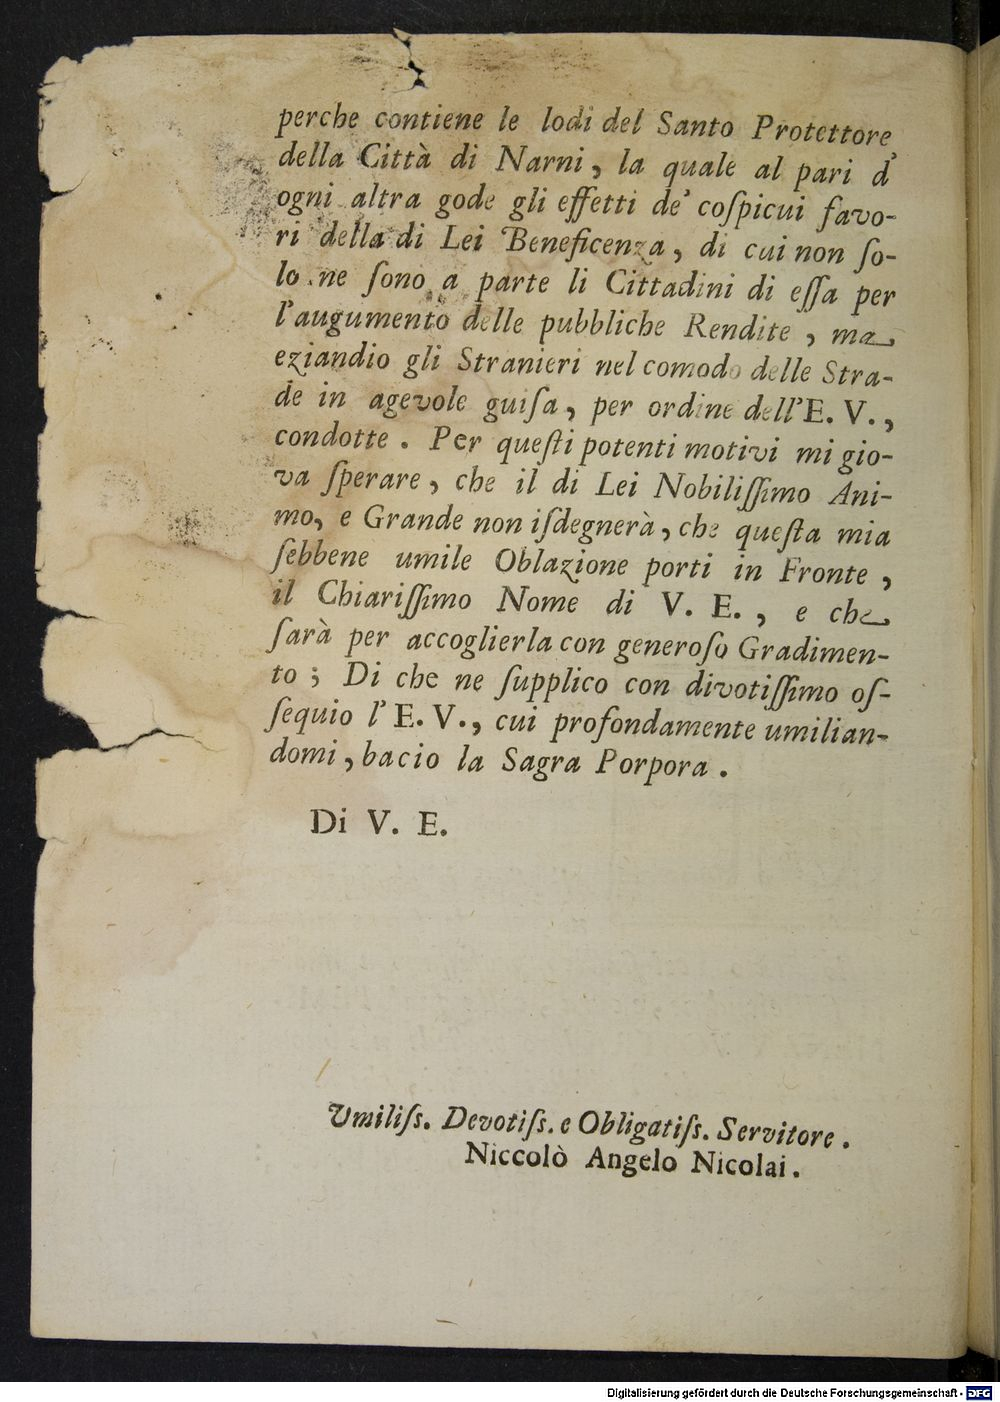 perche contiene le lodi del Santo Protettore
della Città di Narni, la quale al pari d'
ogni altra gode gli effetti de' coſpicui favo-
ri della di Lei Beneficenza, di cui non ſo-
lo ne ſono a parte li Cittadini di eſſa per
l'augumento delle pubbliche Rendite, ma
eziandio gli Stranieri nel comodo delle Stra-
de in agevole guiſa, per ordine dell'E. V.,
condotte. Per queſti potenti motivi mi gio-
va ſperare, che il di Lei Nobiliſſimo Ani-
mo, e Grande non iſdegnerà, che queſta mia
ſebbene umile Oblazione porti in Fronte,
il Chiariſſimo Nome di V. E., e che
ſarà per accoglierla con generoſo Gradimen-
to; Di che ne ſupplico con divotiſſimo oſ-
ſequio l'E. V., cui profondamente umilian-
domi, bacio la Sagra Porpora.
Di V. E.
Umiliſs. Devotiſs. e Obligatiſs. Servitore.
Niccolò Angelo Nicolai.
Digitalisierung gefördert durch die Deutsche Forschungsgemeinschaft - DFG